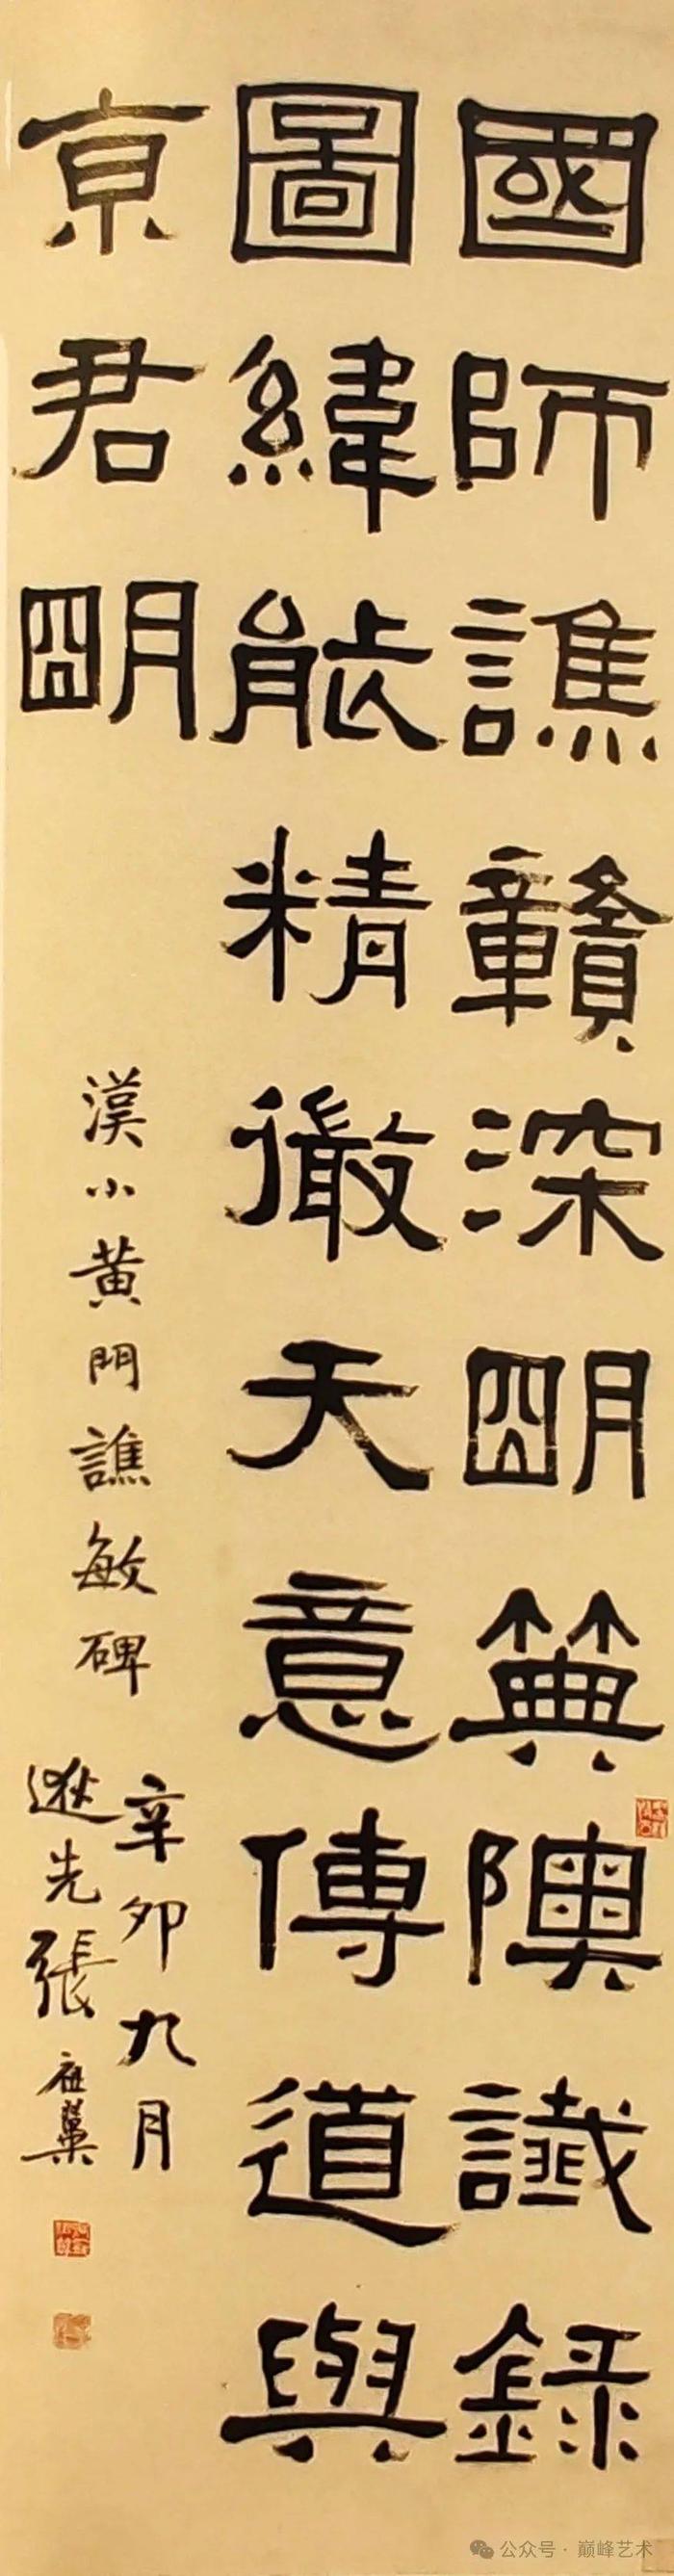 國師譙贛深朙箅隩讖錄
圖緯能精徹天意傳道與
京君朙
漢小黄門譙敏碑
辛卯九月
遯先張祖翼
公众号·巅峰艺术